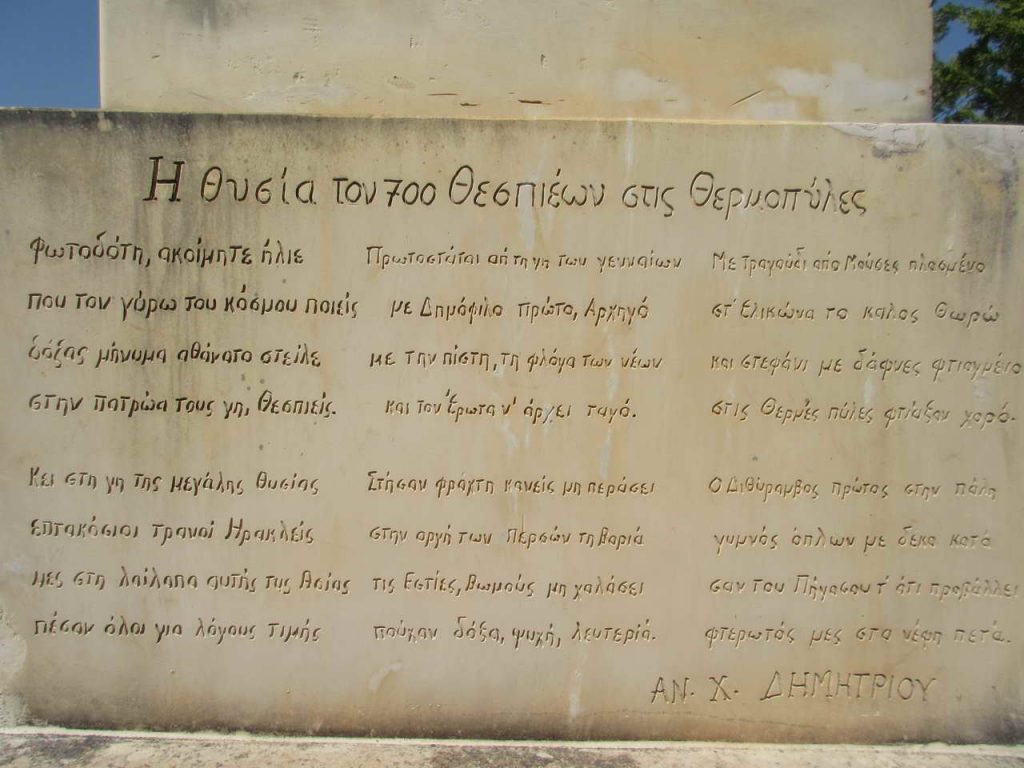 Η θυσία τον 700 Θεσπιέων στις Θερμοπύλες
Φωτοδότη, ακοίμητε ήλιε
που τον γύρω του κόσμου ποιείς
δόξας μήνυμα αθάνατο στείλε
στην πατρώα τους γη, Θεσπιείς.
Κει στη γη της μεγάλης θυσίας
επτακόσιοι τρανοί Ηρακλείς
μες στη λαίλαπα αυτής της Ασίας
πέσαν όλοι για λόγους τιμής
Πρωτοστάται απ' τη γη των γενναίων
με Δημόφιλο πρώτο, Αρχηγό
με την πίστη, τη φλόγα των νέων
και τον Έρωτα ν' άρχει ταγό.
Στήσαν φράχτη κανείς μη περάσει
στην οργή των Περσών τη βαριά
τις Εστίες, Βωμούς μη χαλάσει
πούχαν δόξα, ψυχή, λευτεριά.
Με τραγούδι από Μούσες πλασμένο
στ' Ελικώνα το καλος Θωρώ
και στεφάνι με δάφνες φτιαγμένο
στις Θερμές πύλες φτιάξαν χορό.
Ο Διθύραμβος πρώτος στην πάλη
γυμνός όπλων με δεκα κατά
σαν του Πήγασου τ' ότι προβάλλει
φτερωτός μες στα νέφη πετά.
ΑΝ. Χ. ΔΗΜΗΤΡΙΟΥ